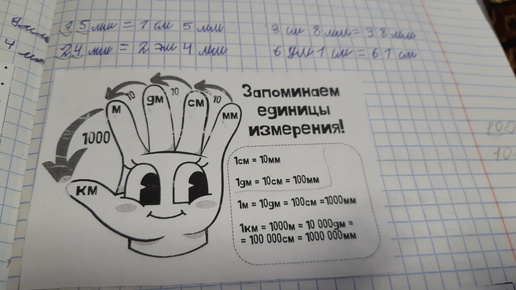 15 мм = 1 см 5 мм
3 см 8 мм = 38 мм
24 мм = 2 см 4 мм
6 дм 1 см = 61 см
Запоминаем
единицы
измерения!
км
1000
м
10
дм
10
см
10
мм
1см = 10мм
1дм = 10см = 100мм
1м = 10дм = 100см =1000мм
1км = 1000м = 10 000дм =
= 100 000см = 1000 000мм